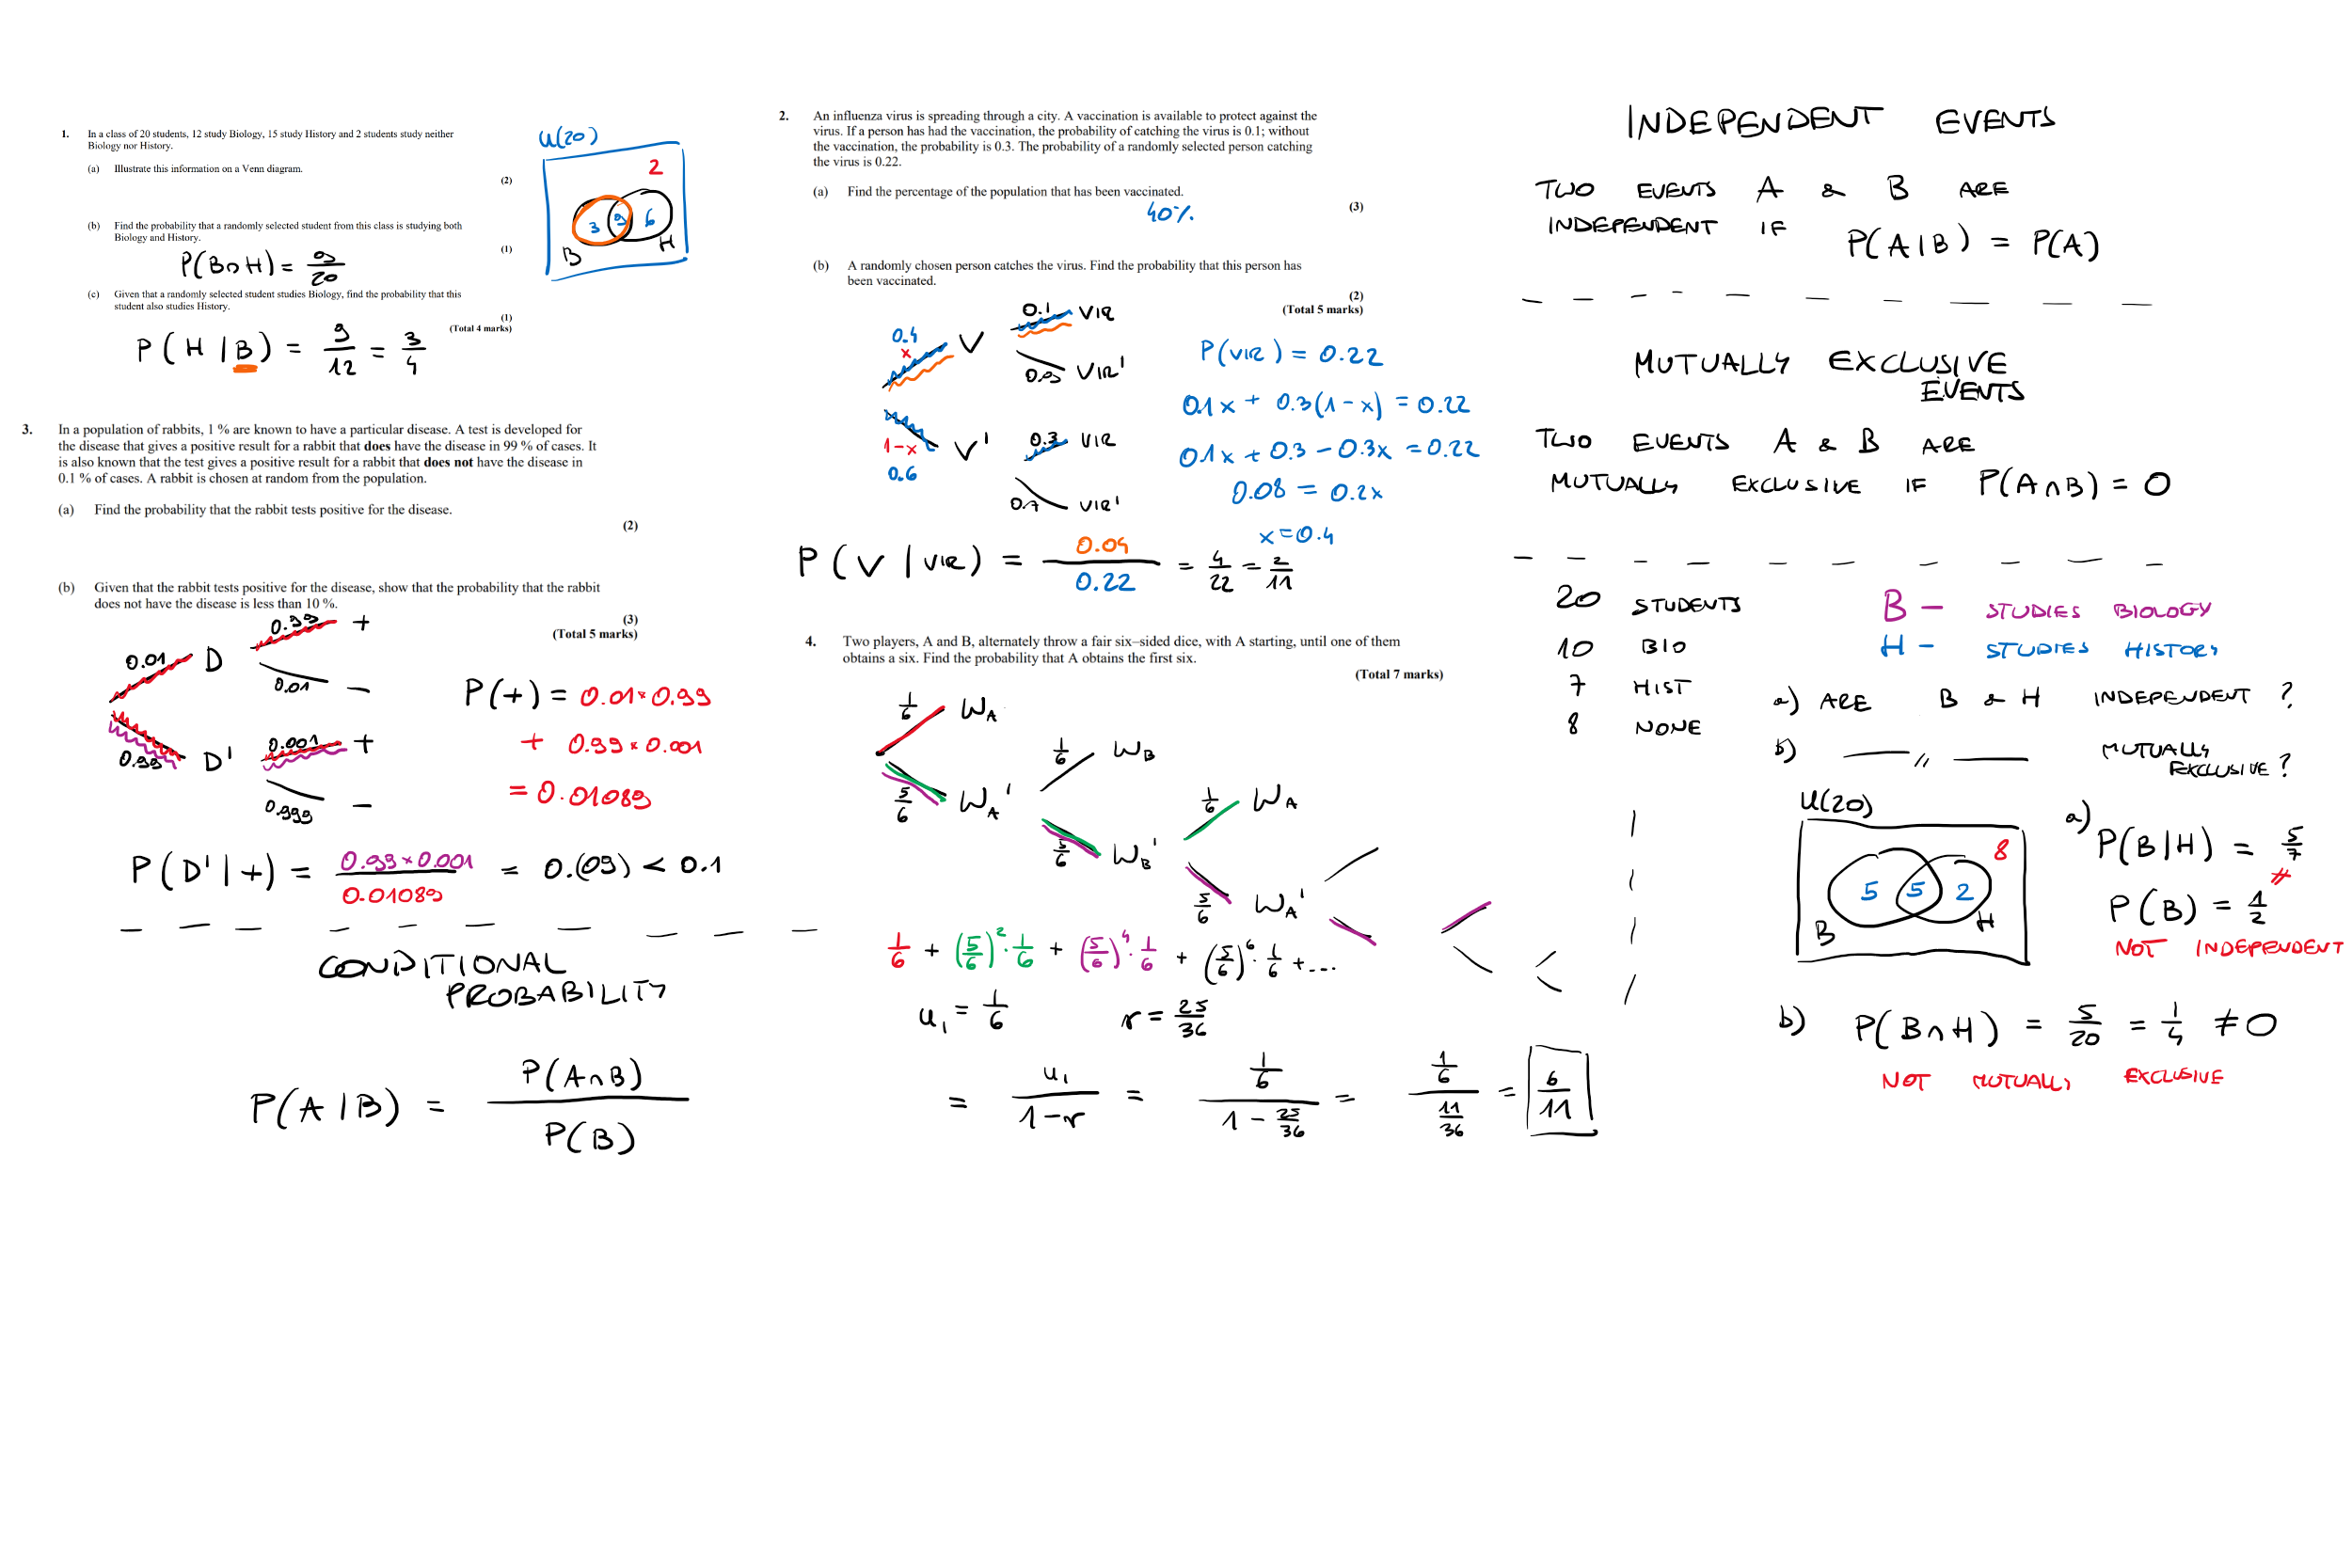 1. In a class of 20 students, 12 study Biology, 15 study History and 2 students study neither
Biology nor History.
(a) Illustrate this information on a Venn diagram.
(2)
(b) Find the probability that a randomly selected student from this class is studying both
Biology and History.
(1)
P(B∩H) = 9/20
(c) Given that a randomly selected student studies Biology, find the probability that this
student also studies History.
(1)
(Total 4 marks)
P(H|B) = 9/12 = 3/4
U(20)
2
3 9 6
B H
3. In a population of rabbits, 1 % are known to have a particular disease. A test is developed for
the disease that gives a positive result for a rabbit that does have the disease in 99 % of cases. It
is also known that the test gives a positive result for a rabbit that does not have the disease in
0.1 % of cases. A rabbit is chosen at random from the population.
(a) Find the probability that the rabbit tests positive for the disease.
(2)
(b) Given that the rabbit tests positive for the disease, show that the probability that the rabbit
does not have the disease is less than 10 %.
(3)
(Total 5 marks)
0.99 +
0.01 D
0.01 −
0.99 D' 0.001 +
0.999 −
P(+) = 0.01×0.99
+ 0.99×0.001
= 0.01089
P(D'|+) = 0.99×0.001/0.01089 = 0.(09) < 0.1
CONDITIONAL
PROBABILITY
P(A|B) = P(A∩B)/P(B)
2. An influenza virus is spreading through a city. A vaccination is available to protect against the
virus. If a person has had the vaccination, the probability of catching the virus is 0.1; without
the vaccination, the probability is 0.3. The probability of a randomly selected person catching
the virus is 0.22.
(a) Find the percentage of the population that has been vaccinated.
40%
(3)
(b) A randomly chosen person catches the virus. Find the probability that this person has
been vaccinated.
(2)
(Total 5 marks)
0.1 VIR
0.4
x V
0.9 VIR'
1-x V' 0.3 VIR
0.6
0.7 VIR'
P(VIR) = 0.22
0.1x + 0.3(1-x) = 0.22
0.1x + 0.3 - 0.3x = 0.22
0.08 = 0.2x
x=0.4
P(V|VIR) = 0.04/0.22 = 4/22 = 2/11
4. Two players, A and B, alternately throw a fair six–sided dice, with A starting, until one of them
obtains a six. Find the probability that A obtains the first six.
(Total 7 marks)
1/6 WA
1/6 WB
5/6 WA'
1/6 WA
5/6 WB'
5/6 WA'
1/6 + (5/6)²·1/6 + (5/6)⁴·1/6 + (5/6)⁶·1/6 +...
u₁ = 1/6 r = 25/36
= u₁/1-r = 1/6/1-25/36 = 1/6/11/36 = 6/11
INDEPENDENT EVENTS
TWO EVENTS A & B ARE
INDEPENDENT IF P(A|B) = P(A)
MUTUALLY EXCLUSIVE
EVENTS
TWO EVENTS A & B ARE
MUTUALLY EXCLUSIVE IF P(A∩B) = 0
20 STUDENTS
10 BIO
7 HIST
8 NONE
B - STUDIES BIOLOGY
H - STUDIES HISTORY
a) ARE B & H INDEPENDENT ?
b) —— 〃 —— MUTUALLY
EXCLUSIVE ?
U(20)
8
5 5 2
B H
a) P(B|H) = 5/7
≠
P(B) = 1/2
NOT INDEPENDENT
b) P(B∩H) = 5/20 = 1/4 ≠ 0
NOT MUTUALLY EXCLUSIVE